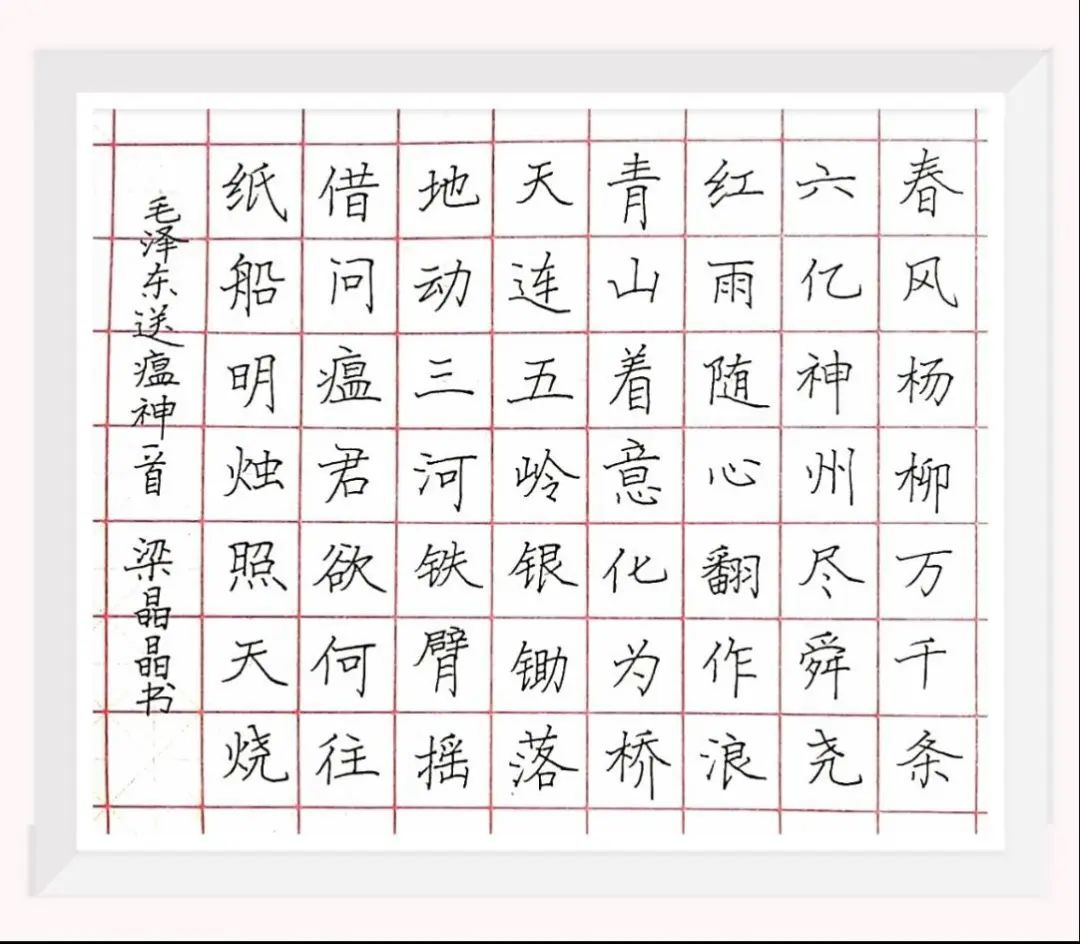 春风杨柳万千条
六亿神州尽舜尧
红雨随心翻作浪
青山着意化为桥
天连五岭银锄落
地动三河铁臂摇
借问瘟君欲何往
纸船明烛照天烧
毛泽东送瘟神一首 梁晶晶书